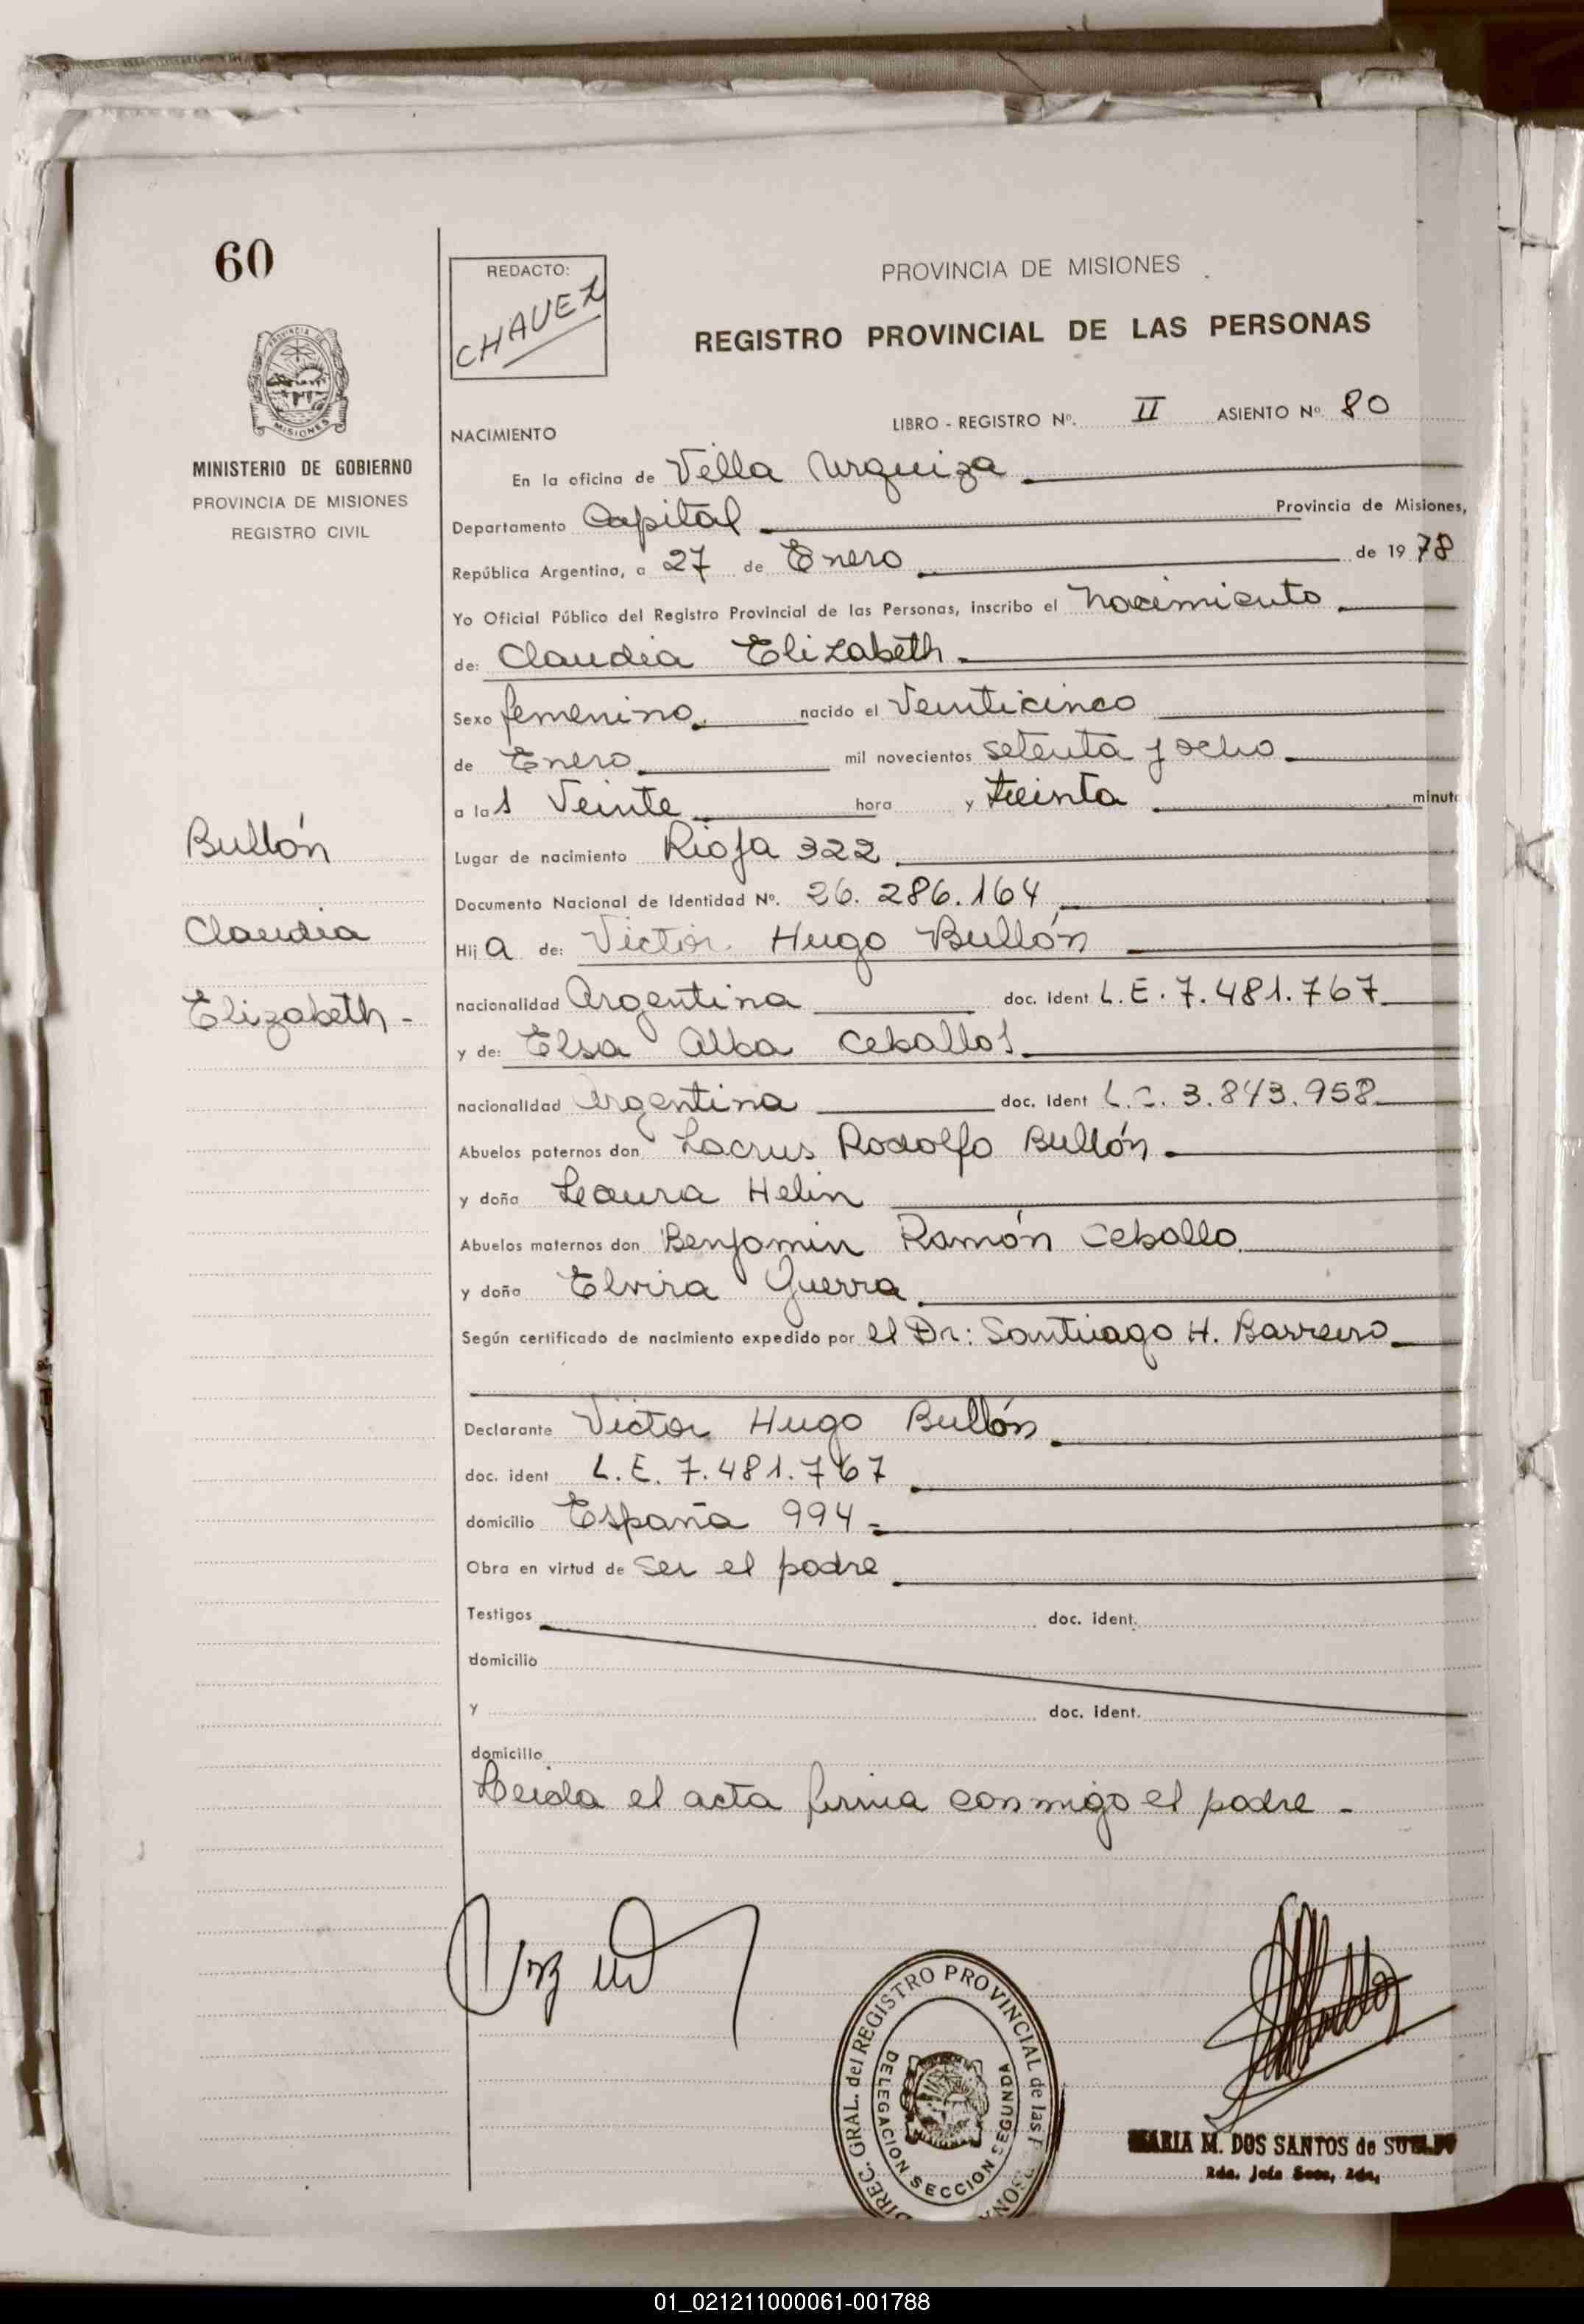 60
REDACTO:
CHAVEZ
PROVINCIA DE MISIONES
REGISTRO PROVINCIAL DE LAS PERSONAS
PROVINCIA DE
MISIONES
MINISTERIO DE GOBIERNO
PROVINCIA DE MISIONES
REGISTRO CIVIL
LIBRO - REGISTRO Nº. II ASIENTO Nº 80
NACIMIENTO
En la oficina de Villa Urquiza
Departamento Capital Provincia de Misiones,
República Argentina, a 27 de Enero de 1978
Yo Oficial Público del Registro Provincial de las Personas, inscribo el nacimiento
de: Claudia Elizabeth
Sexo femenino nacido el Veinticinco
de Enero mil novecientos setenta y ocho
a las Veinte hora y treinta minuto
Lugar de nacimiento Rioja 322
Documento Nacional de Identidad Nº. 26.286.164
Hija de: Victor Hugo Bullón
nacionalidad Argentina doc. Ident L.E. 7.481.767
y de: Elsa Alba Ceballos
nacionalidad Argentina doc. Ident L.C. 3.843.958
Abuelos paternos don Rodolfo Bullón
y doña Laura Helin
Abuelos maternos don Benjamin Ramón Ceballo
y doña Elvira Guerra
Según certificado de nacimiento expedido por el Dr: Santiago H. Barreiro
Declarante Victor Hugo Bullón
doc. ident L.E. 7.481.767
domicilio España 994
Obra en virtud de ser el padre
Testigos doc. ident.
domicilio
y doc. ident.
domicilio
Leida el acta firma conmigo el padre -
Bullón
Claudia
Elizabeth -
DIREC. GRAL. del REGISTRO PROVINCIAL de las
DELEGACION SECCION SEGUNDA
MARIA M. DOS SANTOS de
2da. Jefa Secc. 2da.
01_021211000061-001788